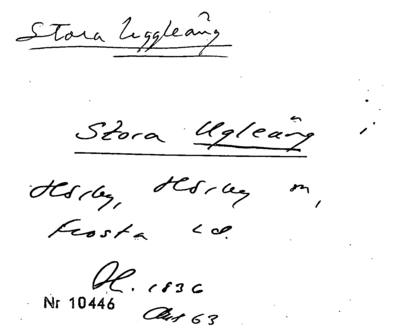 Stora Uggleäng
Stora Ugleäng i
Hörby, Hörby m,
Frosta hd.
1836
Nr 10446
63